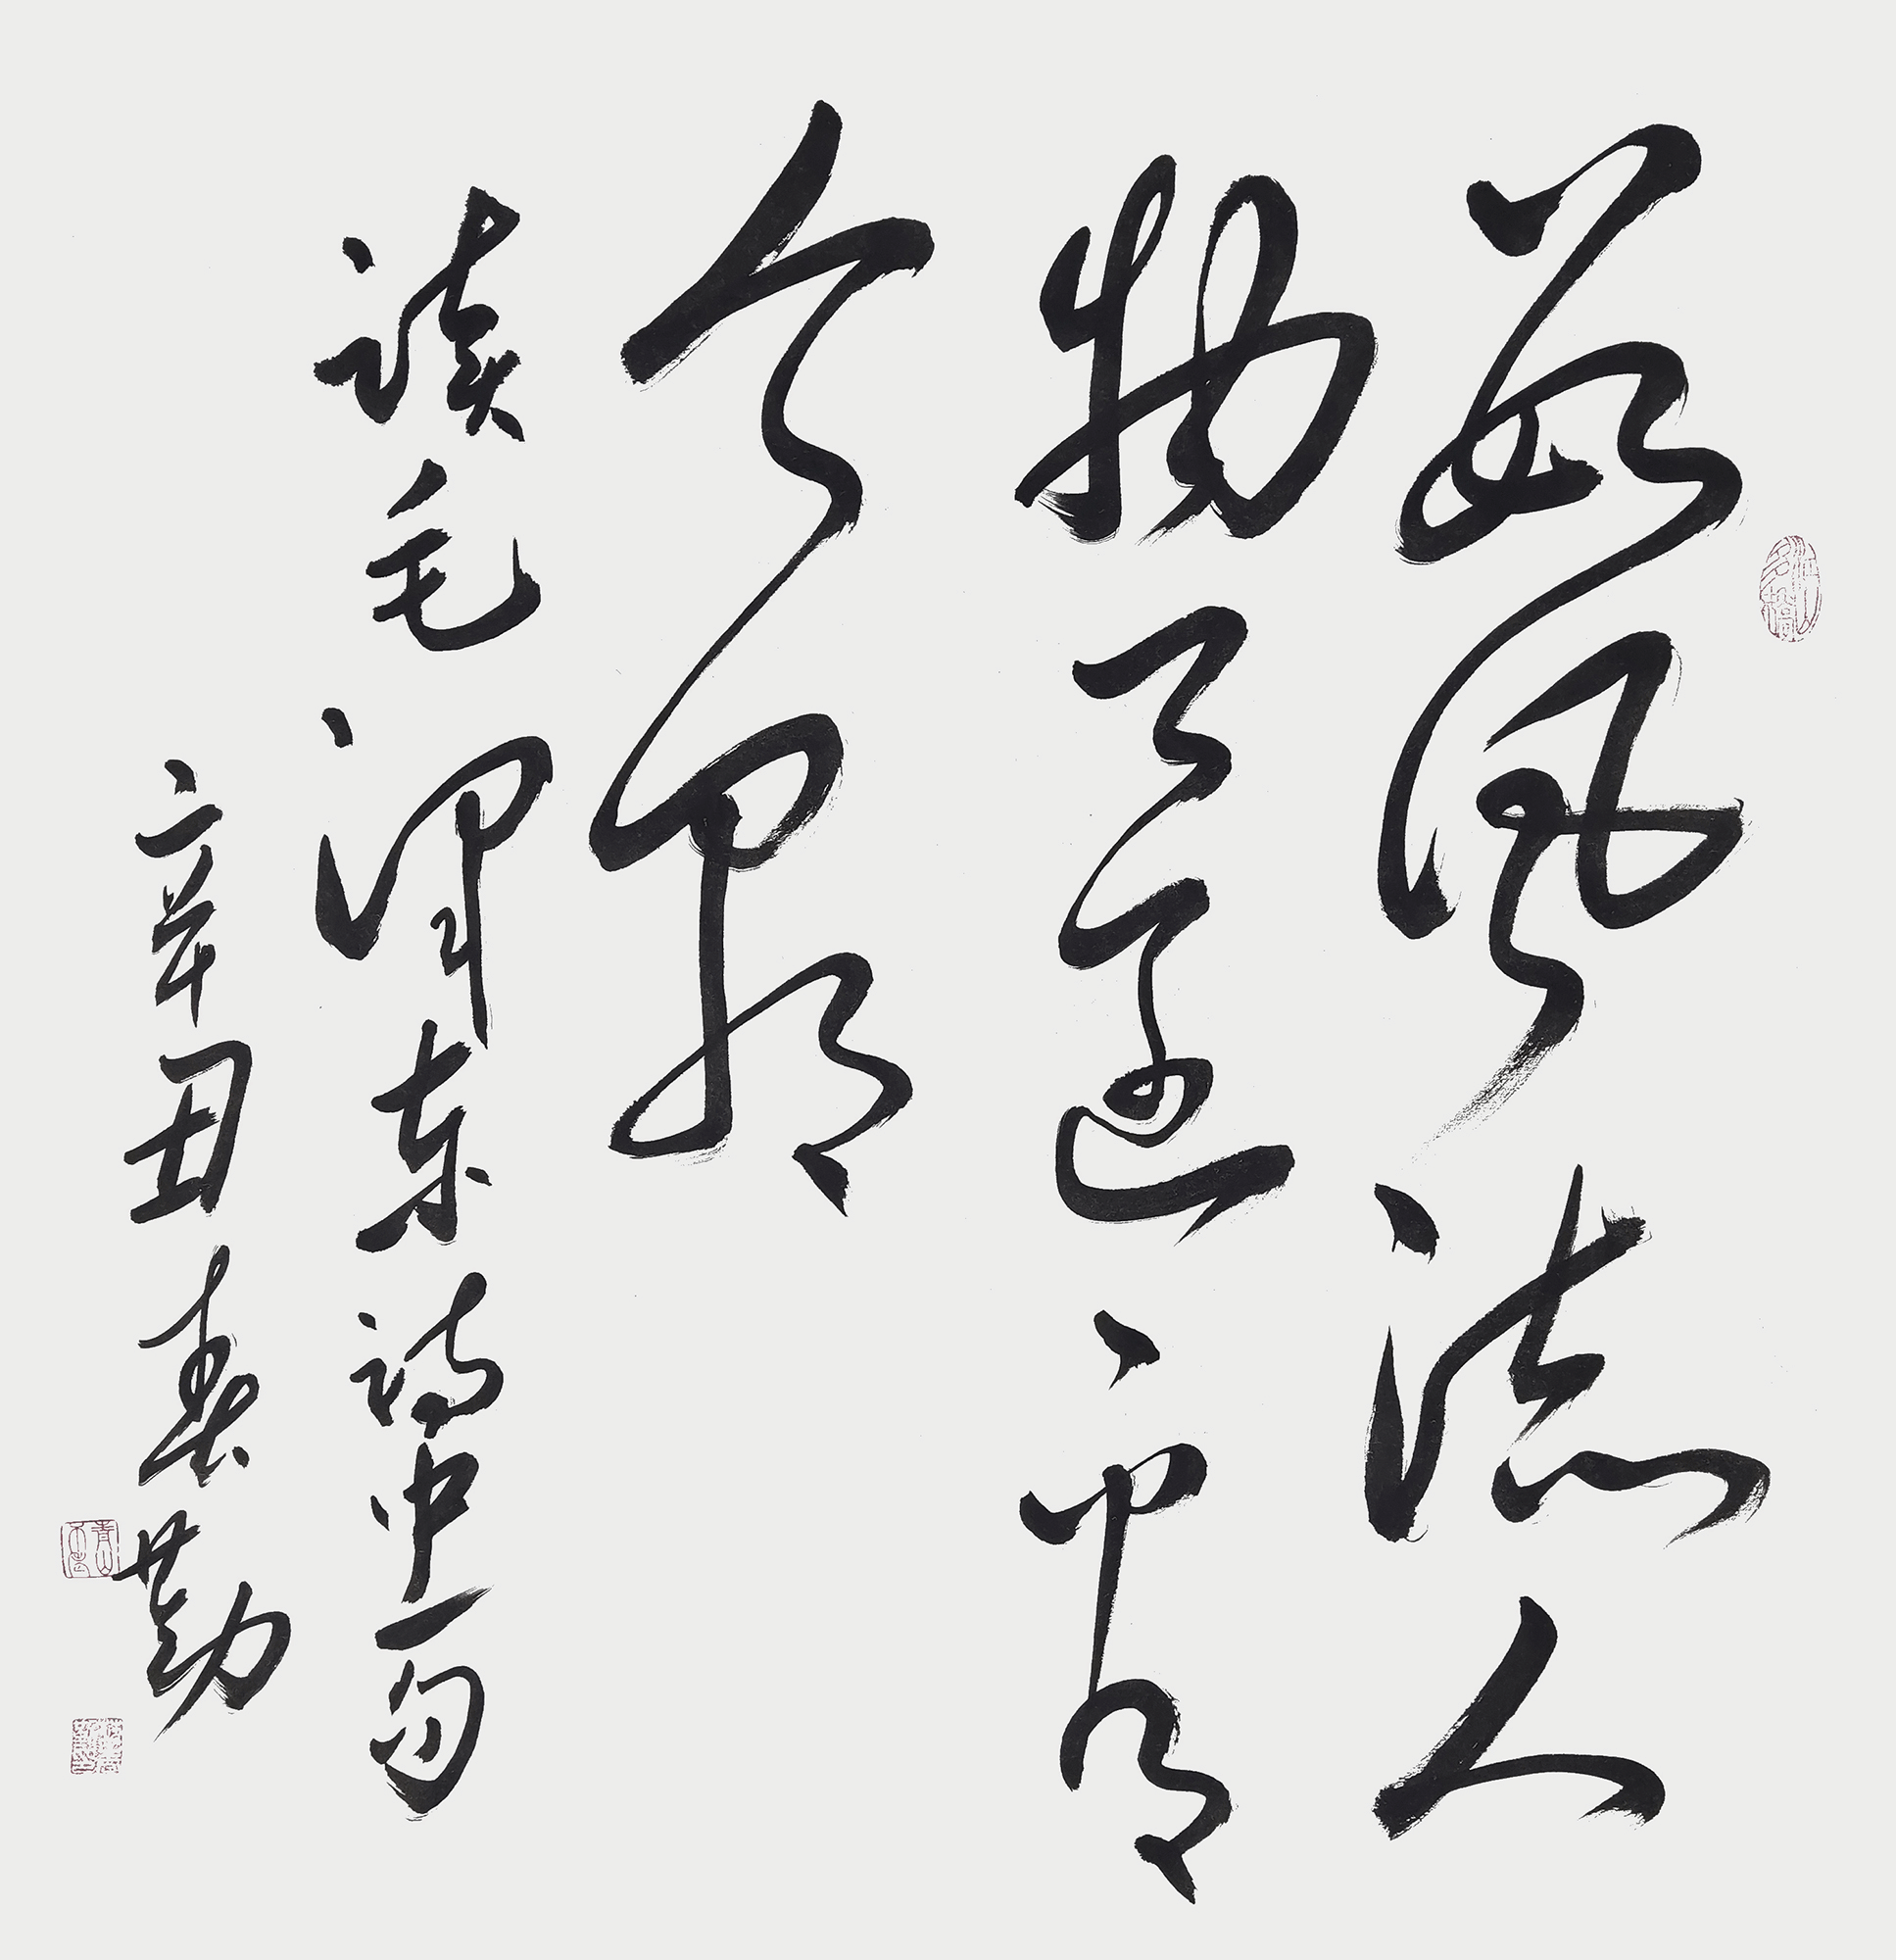 数风流人
物还看
今朝
读毛泽东诗中一句
辛丑春勤